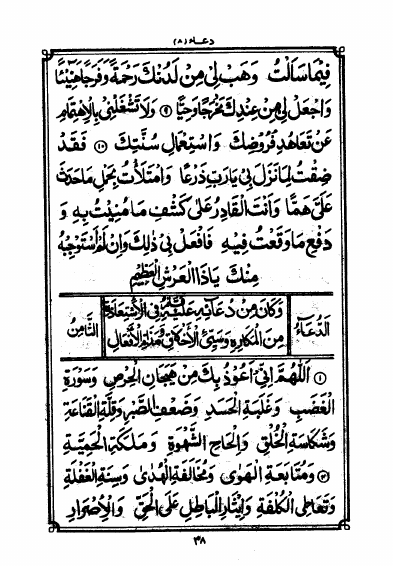 دعاء (۸)
فِيمَا سَأَلْتُ وَهَبْ لِي مِنْ لَدُنْكَ رَحْمَةً وَفَرَجًا هَنِيئًا
وَاجْعَلْ لِي مِنْ عِنْدِكَ مَخْرَجًا وَحِيًّا ۹ وَلَا تَشْغَلْنِي بِالِاهْتِمَامِ
عَنْ تَعَاهُدِ فُرُوضِكَ وَاسْتِعْمَالِ سُنَّتِكَ ۱۰ فَقَدْ
ضِقْتُ لِمَا نَزَلَ بِي يَا رَبِّ ذَرْعًا وَامْتَلَأْتُ بِحَمْلِ مَا حَدَثَ
عَلَيَّ هَمًّا وَأَنْتَ الْقَادِرُ عَلَى كَشْفِ مَا مُنِيتُ بِهِ وَ
دَفْعِ مَا وَقَعْتُ فِيهِ فَافْعَلْ بِي ذٰلِكَ وَإِنْ لَمْ أَسْتَوْجِبْهُ
مِنْكَ يَا ذَا الْعَرْشِ الْعَظِيمِ
الدُّعَاءُ وَكَانَ مِنْ دُعَائِهِ عَلَيْهِ السَّلَامُ فِي الْاِسْتِعَاذَةِ
الثَّامِنُ مِنَ الْمَكَارِهِ وَسَيِّئِ الْأَخْلَاقِ وَمَذَامِّ الْأَفْعَالِ
۱ اَللّٰهُمَّ إِنِّي أَعُوذُ بِكَ مِنْ هَيَجَانِ الْحِرْصِ وَسَوْرَةِ
الْغَضَبِ وَغَلَبَةِ الْحَسَدِ وَضَعْفِ الصَّبْرِ وَقِلَّةِ الْقَنَاعَةِ
وَشَكَاسَةِ الْخُلُقِ وَإِلْحَاحِ الشَّهْوَةِ وَمَلَكَةِ الْحَمِيَّةِ
۲ وَمُتَابَعَةِ الْهَوٰى وَمُخَالَفَةِ الْهُدٰى وَسِنَةِ الْغَفْلَةِ
وَتَعَاطِي الْكُلْفَةِ وَإِيثَارِ الْبَاطِلِ عَلَى الْحَقِّ وَالْإِصْرَارِ
۳۸